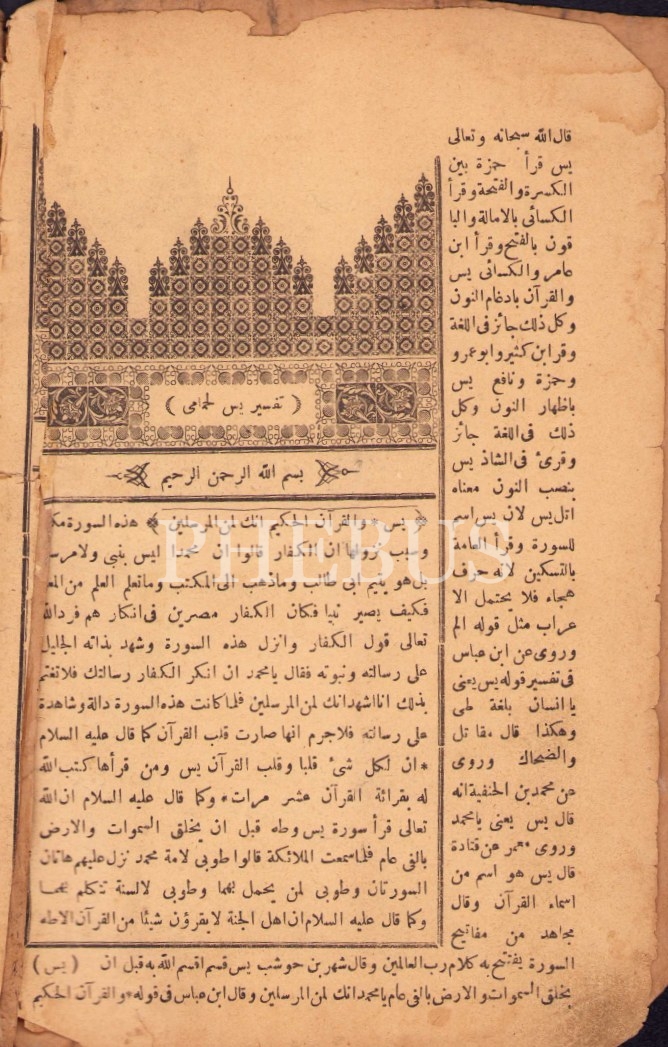 ( تفسير يس لحمامى )
بسم الله الرحمن الرحيم
﴿ يس * والقرآن الحكيم انك لمن المرسلين ﴾ هذه السورة
وسبب نزولها ان الكفار قالوا ان محمدا ليس بنبى ولا
بل هو يتيم ابى طالب وماذهب الى المكتب وماتعلم العلم من
فكيف يصير نبيا فكان الكفار مصرين فى انكارهم فردالله
تعالى قول الكفار وانزل هذه السورة وشهد بذاته الجليل
على رسالته ونبوته فقال يامحمد ان انكر الكفار رسالتك فلاتغتم
بذلك انااشهدانك لمن المرسلين فلماكانت هذه السورة دالة وشاهدة
على رسالته فلاجرم انها صارت قلب القرآن كما قال عليه السلام
* ان لكل شئ قلبا وقلب القرآن يس ومن قرأها كتب الله
له بقرائة القرآن عشر مرات * وكما قال عليه السلام ان الله
تعالى قرأ سورة يس وطه قبل ان يخلق السموات والارض
بالفى عام فلماسمعت الملائكة قالوا طوبى لامة محمد نزل عليهم هاتان
السورتان وطوبى لمن يحمل بهما وطوبى لالسنة تتكلم بهما
وكما قال عليه السلام ان اهل الجنة لايقرؤن شيئا من القرآن الاطه
قال الله سبحانه وتعالى
يس قرأ حمزة بين
الكسرة والفتحة وقرأ
الكسائى بالامالة والبا
قون بالفتح وقرأ ابن
عامر والكسائى يس
والقرآن بادغام النون
وكل ذلك جائز فى اللغة
وقرابن كثير وابو عمرو
وحمزة ونافع يس
باظهار النون وكل
ذلك فى اللغة جائز
وقرئ فى الشاذ يس
بنصب النون معناه
اتل يس لان يس اسم
للسورة وقرأ العامة
بالتسكين لانه حرف
هجاء فلا يحتمل الا
عراب مثل قوله الم
وروى عن ابن عباس
فى تفسير قوله يس يعنى
يا انسان بلغة طى
وهكذا قال مقاتل
والضحاك وروى
عن محمد بن الحنفية انه
قال يس يعنى يامحمد
وروى معمر عن قتادة
قال يس هو اسم من
اسماء القرآن وقال
مجاهد من مفاتيح
السورة يفتتح به كلام رب العالمين وقال شهر بن حوشب يس قسم اقسم الله به قبل ان ( يس )
يخلق السموات والارض بالفى عام يامحمد انك لمن المرسلين وقال ابن عباس فى قوله * والقرآن الحكيم
PHEBUS